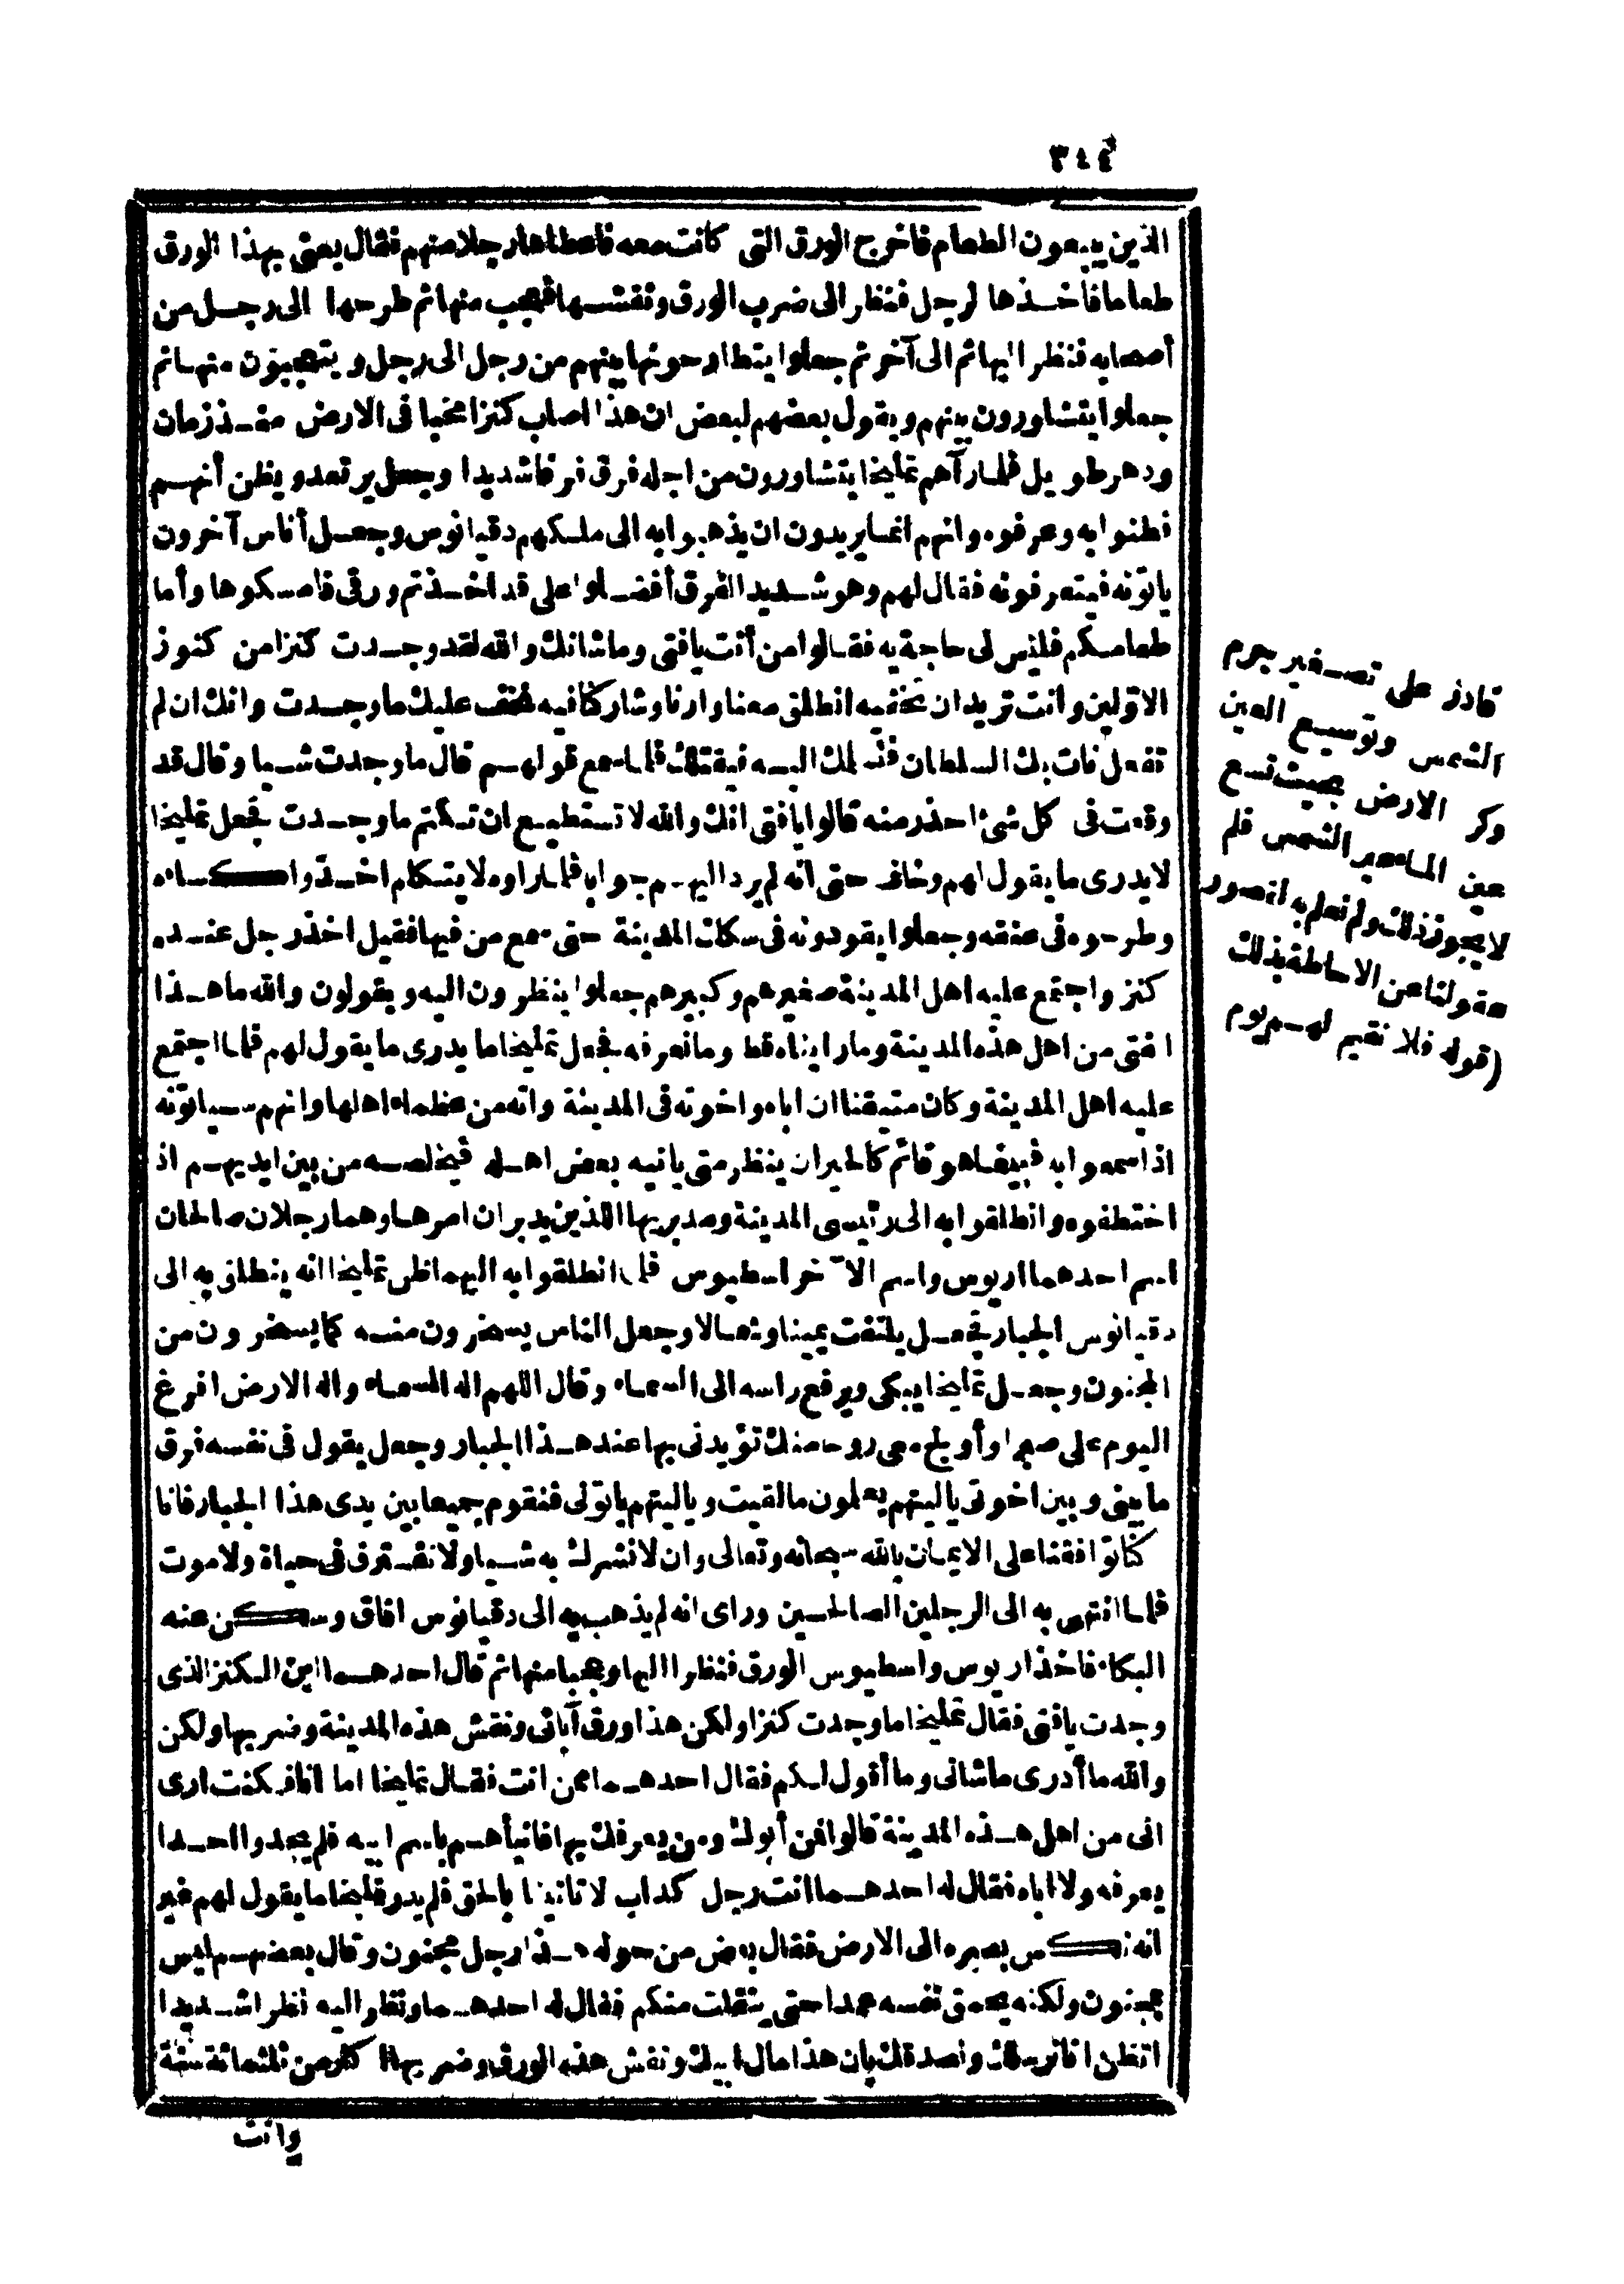 ٣٤٤
الذين يبيعون الطعام فاخرج الورق التى كانت معه فاعطاها رجلا منهم فقال بعنى بهذا الورق
طعاما فاخذها الرجل فنظر الى ضرب الورق ونقشها فعجب منها ثم طرحها الى رجل من
أصحابه فنظر اليها ثم الى آخر ثم جعلوا يتطارحونها بينهم من رجل الى رجل ويتعجبون منها ثم
جعلوا يتشاورون بينهم ويقول بعضهم لبعض ان هذا اصاب كنزا مخبيا فى الارض منذ زمان
ودهر طويل فلما رآهم تمليخا يتشاورون من اجله فرق فرقا شديدا وجعل يرتعد ويظن أنهم
فطنوا به وعرفوه وانهم انما يريدون ان يذهبوا به الى ملكهم دقيانوس وجعل أناس آخرون
ياتونه فيتعرفونه فقال لهم وهو شديد الفرق أفضلوا على قد اخذتم ورقى فامسكوها وأما
طعامكم فليس لى حاجة به فقالوا من أنت يافتى وما شانك والله لقد وجدت كنزا من كنوز
الاولين وأنت تريد ان تخفيه انطلق معنا وارنا وشاركنا فيه نخفف عليك ما وجدت وانك ان لم
تفعل نات بك السلطان فنسلمك اليه فيقتلك فلما سمع قولهم قال ما وجدت شيا وقال قد
وقعت فى كل شئ احذر منه قالوا يافتى انك والله لا تستطيع ان تكتم ما وجدت فجعل تمليخا
لا يدرى ما يقول لهم وخاف حتى انه لم يرد اليهم جوابا فلما راوه لا يتكلم اخذوا كساءه
وطرحوه فى عنقه وجعلوا يقودونه فى سكك المدينة حتى سمع من فيها فقيل اخذ رجل عنده
كنز واجتمع عليه اهل المدينة صغيرهم وكبيرهم جعلوا ينظرون اليه ويقولون والله ما هذا
الفتى من اهل هذه المدينة وما رايناه قط وما نعرفه فجعل تمليخا ما يدرى ما يقول لهم فلما اجتمع
عليه اهل المدينة وكان متيقنا ان اباه واخوته فى المدينة وانه من عظماء اهلها وانهم سياتونه
اذا سمعوا به فبينما هو قائم كالحيران ينتظر متى ياتيه بعض اهله فيخلصه من بين ايديهم اذ
اختطفوه وانطلقوا به الى رئيسى المدينة ومدبريها اللذين يدبران امرها وهما رجلان صالحان
اسم احدهما اريوس واسم الآخر اسطيوس فلما انطلقوا به اليهما ظن تمليخا انه ينطلق به الى
دقيانوس الجبار فجعل يلتفت يمينا وشمالا وجعل الناس يسخرون منه كما يسخرون من
المجنون وجعل تمليخا يبكى ويرفع راسه الى السماء وقال اللهم اله السماء واله الارض افرغ
اليوم على صبرا وأولج معى روحا منك تؤيدنى بها عند هذا الجبار وجعل يقول فى نفسه فرق
ما بينى وبين اخوتى ياليتهم يعلمون ما لقيت وياليتهم ياتونى فنقوم جميعا بين يدى هذا الجبار فانا
كنا توافقنا على الايمان بالله سبحانه وتعالى وان لا نشرك به شيا ولا نفترق فى حياة ولا موت
فلما انتهى به الى الرجلين الصالحين وراى انه لم يذهب به الى دقيانوس افاق وسكن عنه
البكاء فاخذ اريوس واسطيوس الورق فنظرا اليها وعجبا منها ثم قال احدهما اين الكنز الذى
وجدت يافتى فقال تمليخا ما وجدت كنزا ولكن هذا ورق آبائى ونقش هذه المدينة وضربها ولكن
والله ما أدرى ما شانى وما أقول لكم فقال احدهما ممن انت فقال تمليخا اما انا فكنت ارى
انى من اهل هذه المدينة قالوا فمن أبوك ومن يعرفك بها فانبأهم باسم ابيه فلم يجدوا احدا
يعرفه ولا اباه فقال له احدهما انت رجل كذاب لا تاتينا بالحق فلم يدر تمليخا ما يقول لهم غير
انه نكس بصره الى الارض فقال بعض من حوله هذا رجل مجنون وقال بعضهم ليس
بمجنون ولكنه يحمق نفسه عمدا حتى ينفلت منكم فقال له احدهما ونظر اليه نظرا شديدا
اتظن انا نرسلك ونصدقك بان هذا مال ابيك ونقش هذه الورق وضربها اكثر من ثلثمائة سنة
وانت
قادر على تصغير جرم
الشمس وتوسيع العين
وكر الارض بحيث تسع
عين الماء عين الشمس فلم
لا يجوز ذلك ولم نعلم به لقصور
عقولنا عن الاحاطة بذلك
(قوله فلا نقيم لهم يوم